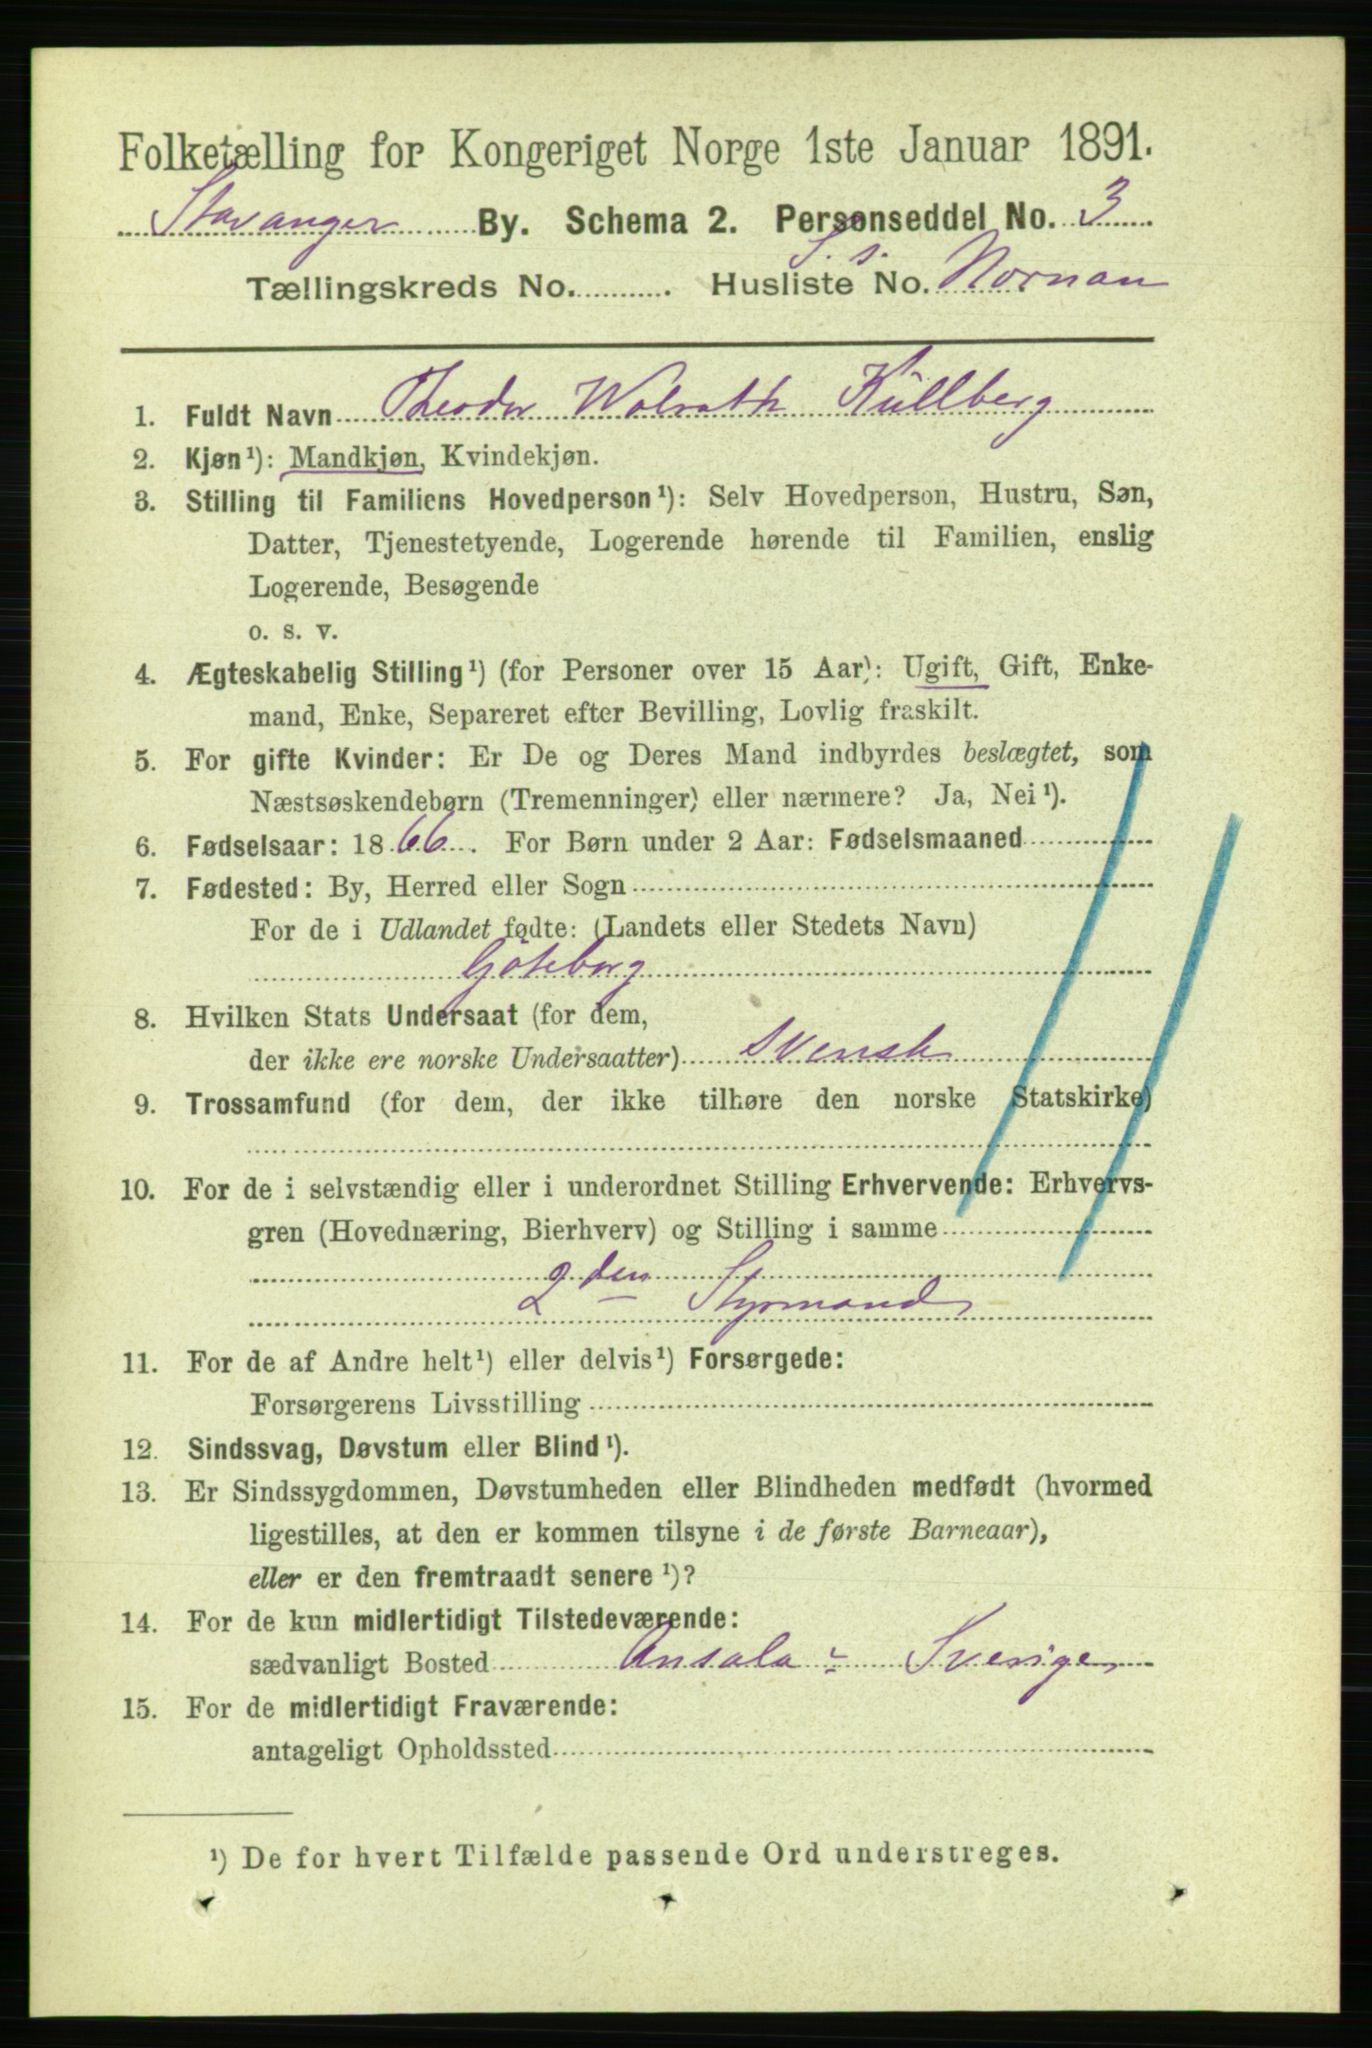 Folketælling for Kongeriget Norge 1ste Januar 1891.
Stavanger By. Schema 2. Personseddel No. 3
S. s.
Tællingskreds No. . Husliste No. Nornan
1. Fuldt Navn Theodor Wolrath Kullberg
2. Kjøn¹): Mandkjøn, Kvindekjøn.
3. Stilling til Familiens Hovedperson¹): Selv Hovedperson, Hustru, Søn,
Datter, Tjenestetyende, Logerende hørende til Familien, enslig
Logerende, Besøgende
o. s. v.
4. Ægteskabelig Stilling¹) (for Personer over 15 Aar): Ugift, Gift, Enke-
mand, Enke, Separeret efter Bevilling, Lovlig fraskilt.
5. For gifte Kvinder: Er De og Deres Mand indbyrdes beslægtet, som
Næstsøskendebørn (Tremenninger) eller nærmere? Ja, Nei¹).
6. Fødselsaar: 1866. For Børn under 2 Aar: Fødselsmaaned
7. Fødested: By, Herred eller Sogn
For de i Udlandet fødte: (Landets eller Stedets Navn)
Göteborg
8. Hvilken Stats Undersaat (for dem,
der ikke ere norske Undersaatter) Svensk
9. Trossamfund (for dem, der ikke tilhøre den norske Statskirke)
10. For de i selvstændig eller i underordnet Stilling Erhvervende: Erhvervs-
gren (Hovednæring, Bierhverv) og Stilling i samme
2den Styrmand
11. For de af Andre helt¹) eller delvis¹) Forsørgede:
Forsørgerens Livsstilling
12. Sindssvag, Døvstum eller Blind¹).
13. Er Sindssygdommen, Døvstumheden eller Blindheden medfødt (hvormed
ligestilles, at den er kommen tilsyne i de første Barneaar),
eller er den fremtraadt senere¹)?
14. For de kun midlertidigt Tilstedeværende:
sædvanligt Bosted Onsala - Sverige
15. For de midlertidigt Fraværende:
antageligt Opholdssted
¹) De for hvert Tilfælde passende Ord understreges.